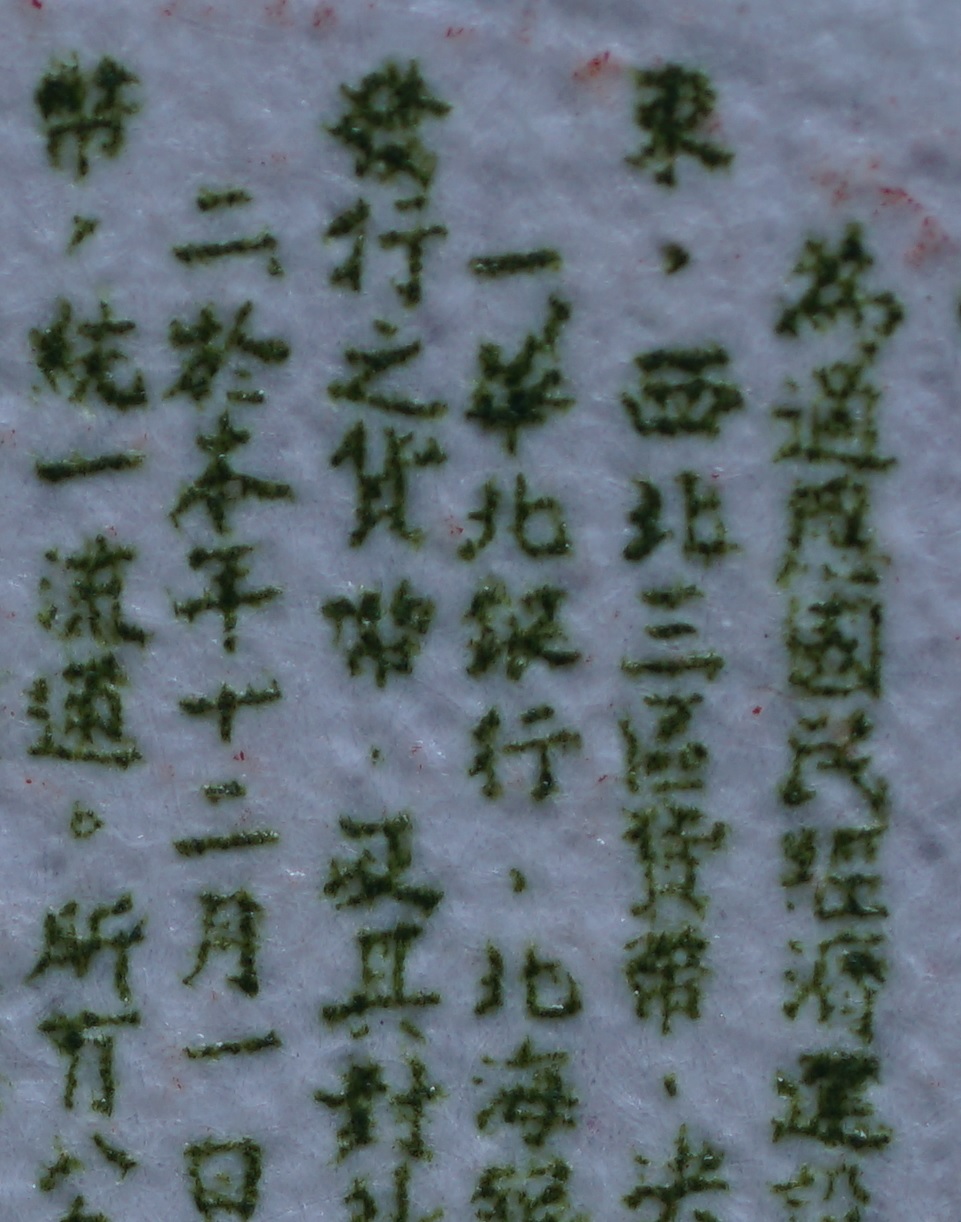 為適應國民經濟建設
東、西北三區貨幣，決
一、華北銀行、北海銀
發行之貨幣，及其對外
二、於本年十二月一日
幣，統一流通。所有公